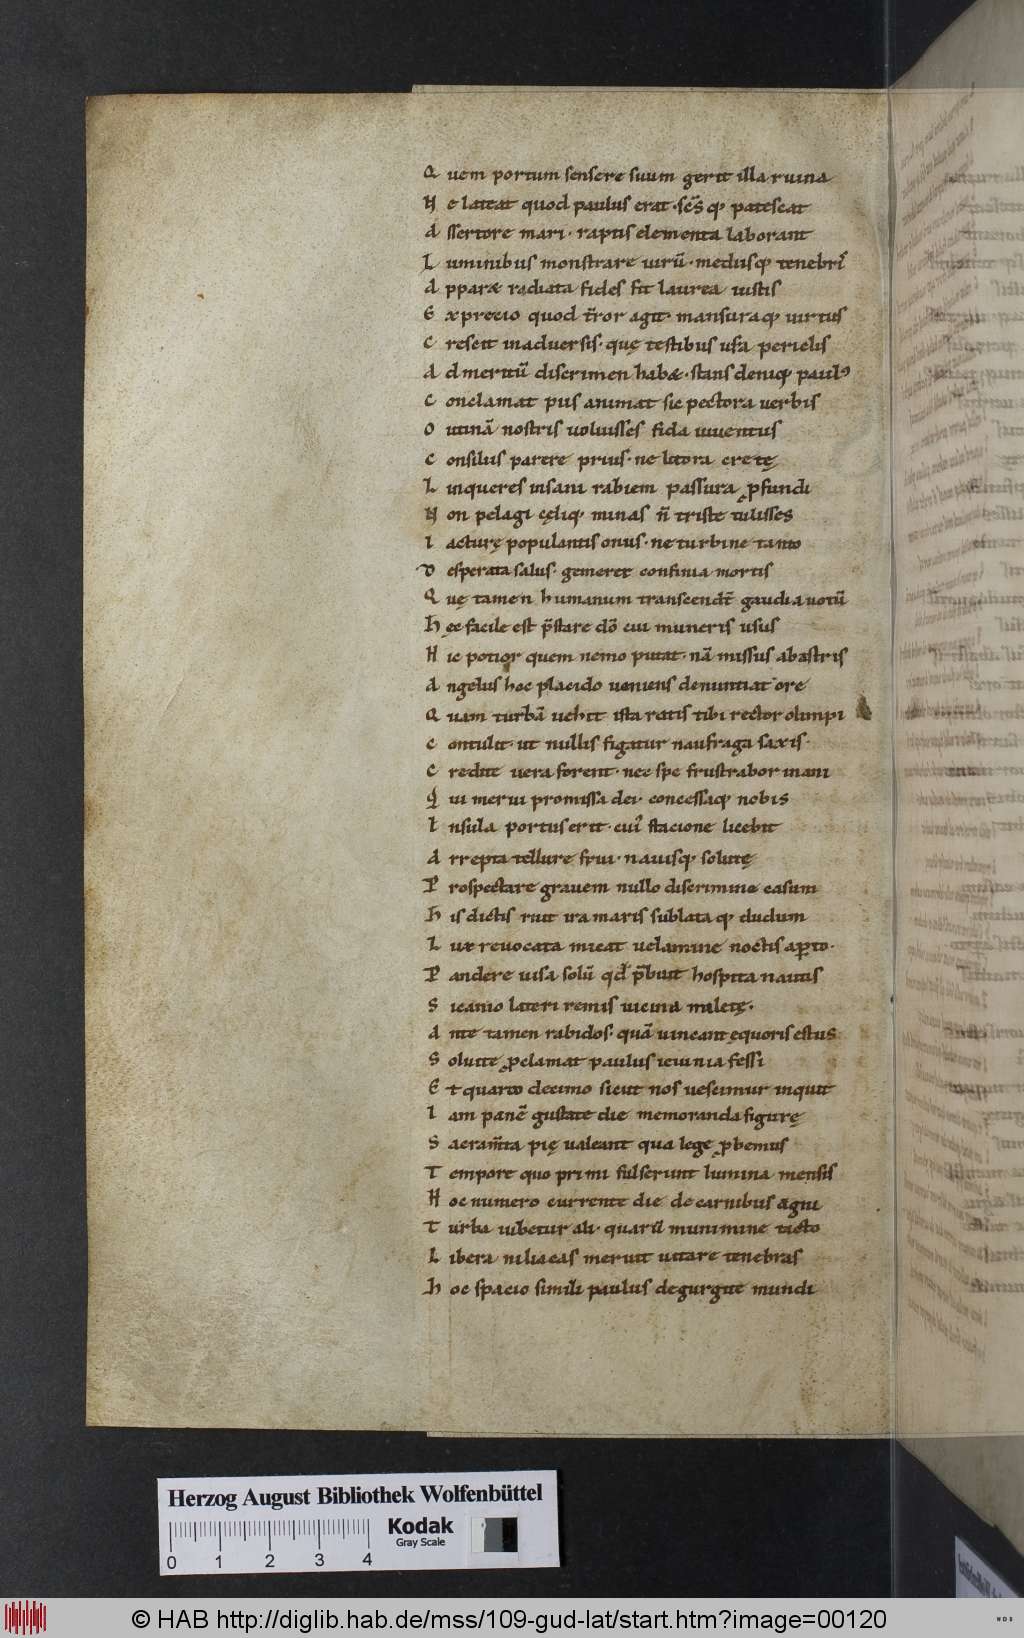 Q uem portum sensere suum gerit illa ruina
N e lateat quod paulus erat · scs̄ q; patescat
A ssertore mari · raptis elementa laborant
L uminibus monstrare uirū · mediisq; tenebrī
A pparæ radiata fides fit laurea iustis
E x precio quod t̄ror agit · mansuraq; uirtus
C rescit inaduersis · quę testibus usa periclis
A d meritū discrimen habæ · stans deniq; paul⁹
C onclamat pius animat sic pectora uerbis
O utinā nostris uoluisses fida iuuentus
C onsiliis parere prius · ne litora cretę
L inqueres insani rabiem passura ꝓfundi
N on pelagi cęliq; minas n̄ triste tulisses
I acturę populantis onus · ne turbine tanto
D esperata salus · gemeret confinia mortis
Q uę tamen humanum transcendt̄ gaudia uotū
H ęc facile est p̄stare dō cui muneris usus
H ic potior quem nemo putat · nā missus abastris
A ngelus hoc placido ueniens denuntiat ore
Q uam turbā uehit ista ratis tibi rector olimpi
C ontulit · ut nullis figatur naufraga saxis ·
C redite uera forent · nec spe frustrabor inani
Q ui merui promissa dei · concessaq; nobis
I nsula portus erit · cuī stacione licebit
A rrepta tellure frui · nauisq; solutę
P rospectare grauem nullo discrimine casum
H is dictis ruit ira maris sublata q; dudum
L ux reuocata micat uelamine noctis aꝑto ·
P andere uisa solū qd p̄buit hospita nautis
S icanio lateri remis uicina miletę ·
A nte tamen rabidos · quā uincant ęquoris estus
S oluite ꝓclamat paulus ieiunia fessi
E t quarto decimo sicut nos uescimur inquit
I am panē gustate die memoranda figurę
S acram̄ta pię ualeant qua lege ꝓbemus
T empore quo primi fulserunt lumina mensis
H oc numero currente die de carnibus agni
T urba iubetur ali · quarū munimine tacto
L ibera niliacas meruit uitare tenebras
H oc spacio simili paulus degurgite mundi
Herzog August Bibliothek Wolfenbüttel
0 1 2 3 4
Kodak
Gray Scale
© HAB http://diglib.hab.de/mss/109-gud-lat/start.htm?image=00120